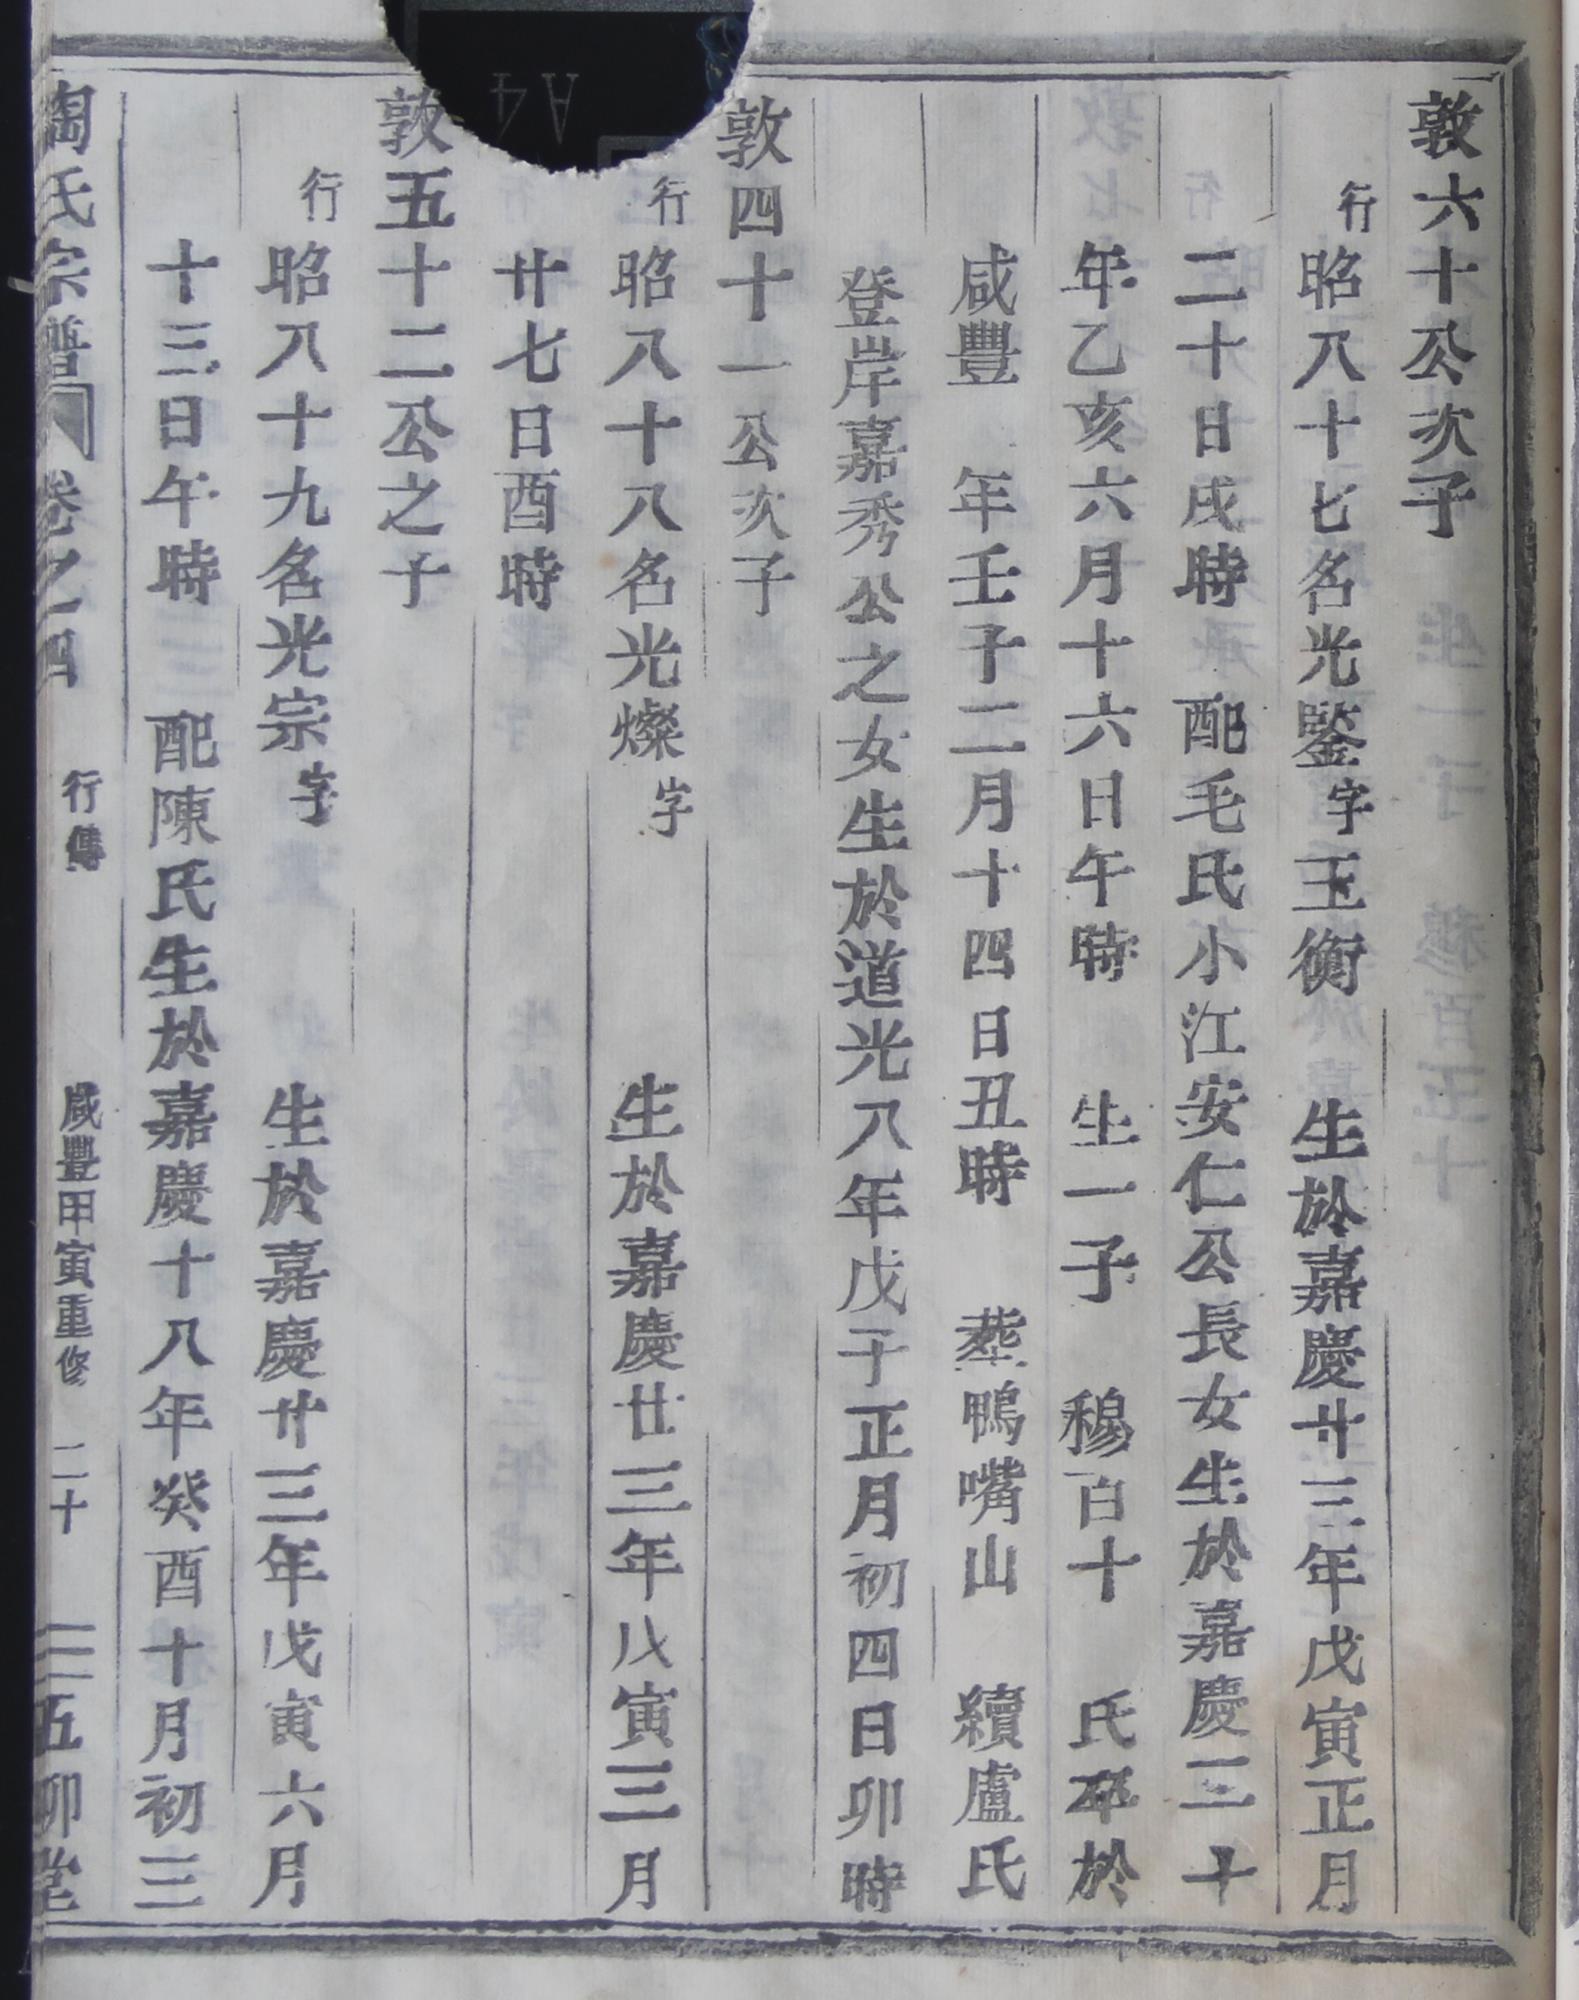 敦六十公次子
行昭八十七名光鑒字玉衡 生於嘉慶廿三年戊寅正月
二十日戌時 配毛氏小江安仁公長女生於嘉慶二十
年乙亥六月十六日午時 生一子 穆百十 氏卒於
咸豐 年壬子二月十四日丑時 葬鴨嘴山 續盧氏
登岸嘉秀公之女生於道光八年戊子正月初四日卯時
敦四十一公次子
行昭八十八名光燦字 生於嘉慶廿三年戊寅三月
廿七日酉時
敦五十二公之子
行昭八十九名光宗字 生於嘉慶廿三年戊寅六月
十三日午時 配陳氏生於嘉慶十八年癸酉十月初三
陶氏宗譜 卷之四 行傳 咸豐甲寅重修 二十 五柳堂
A4